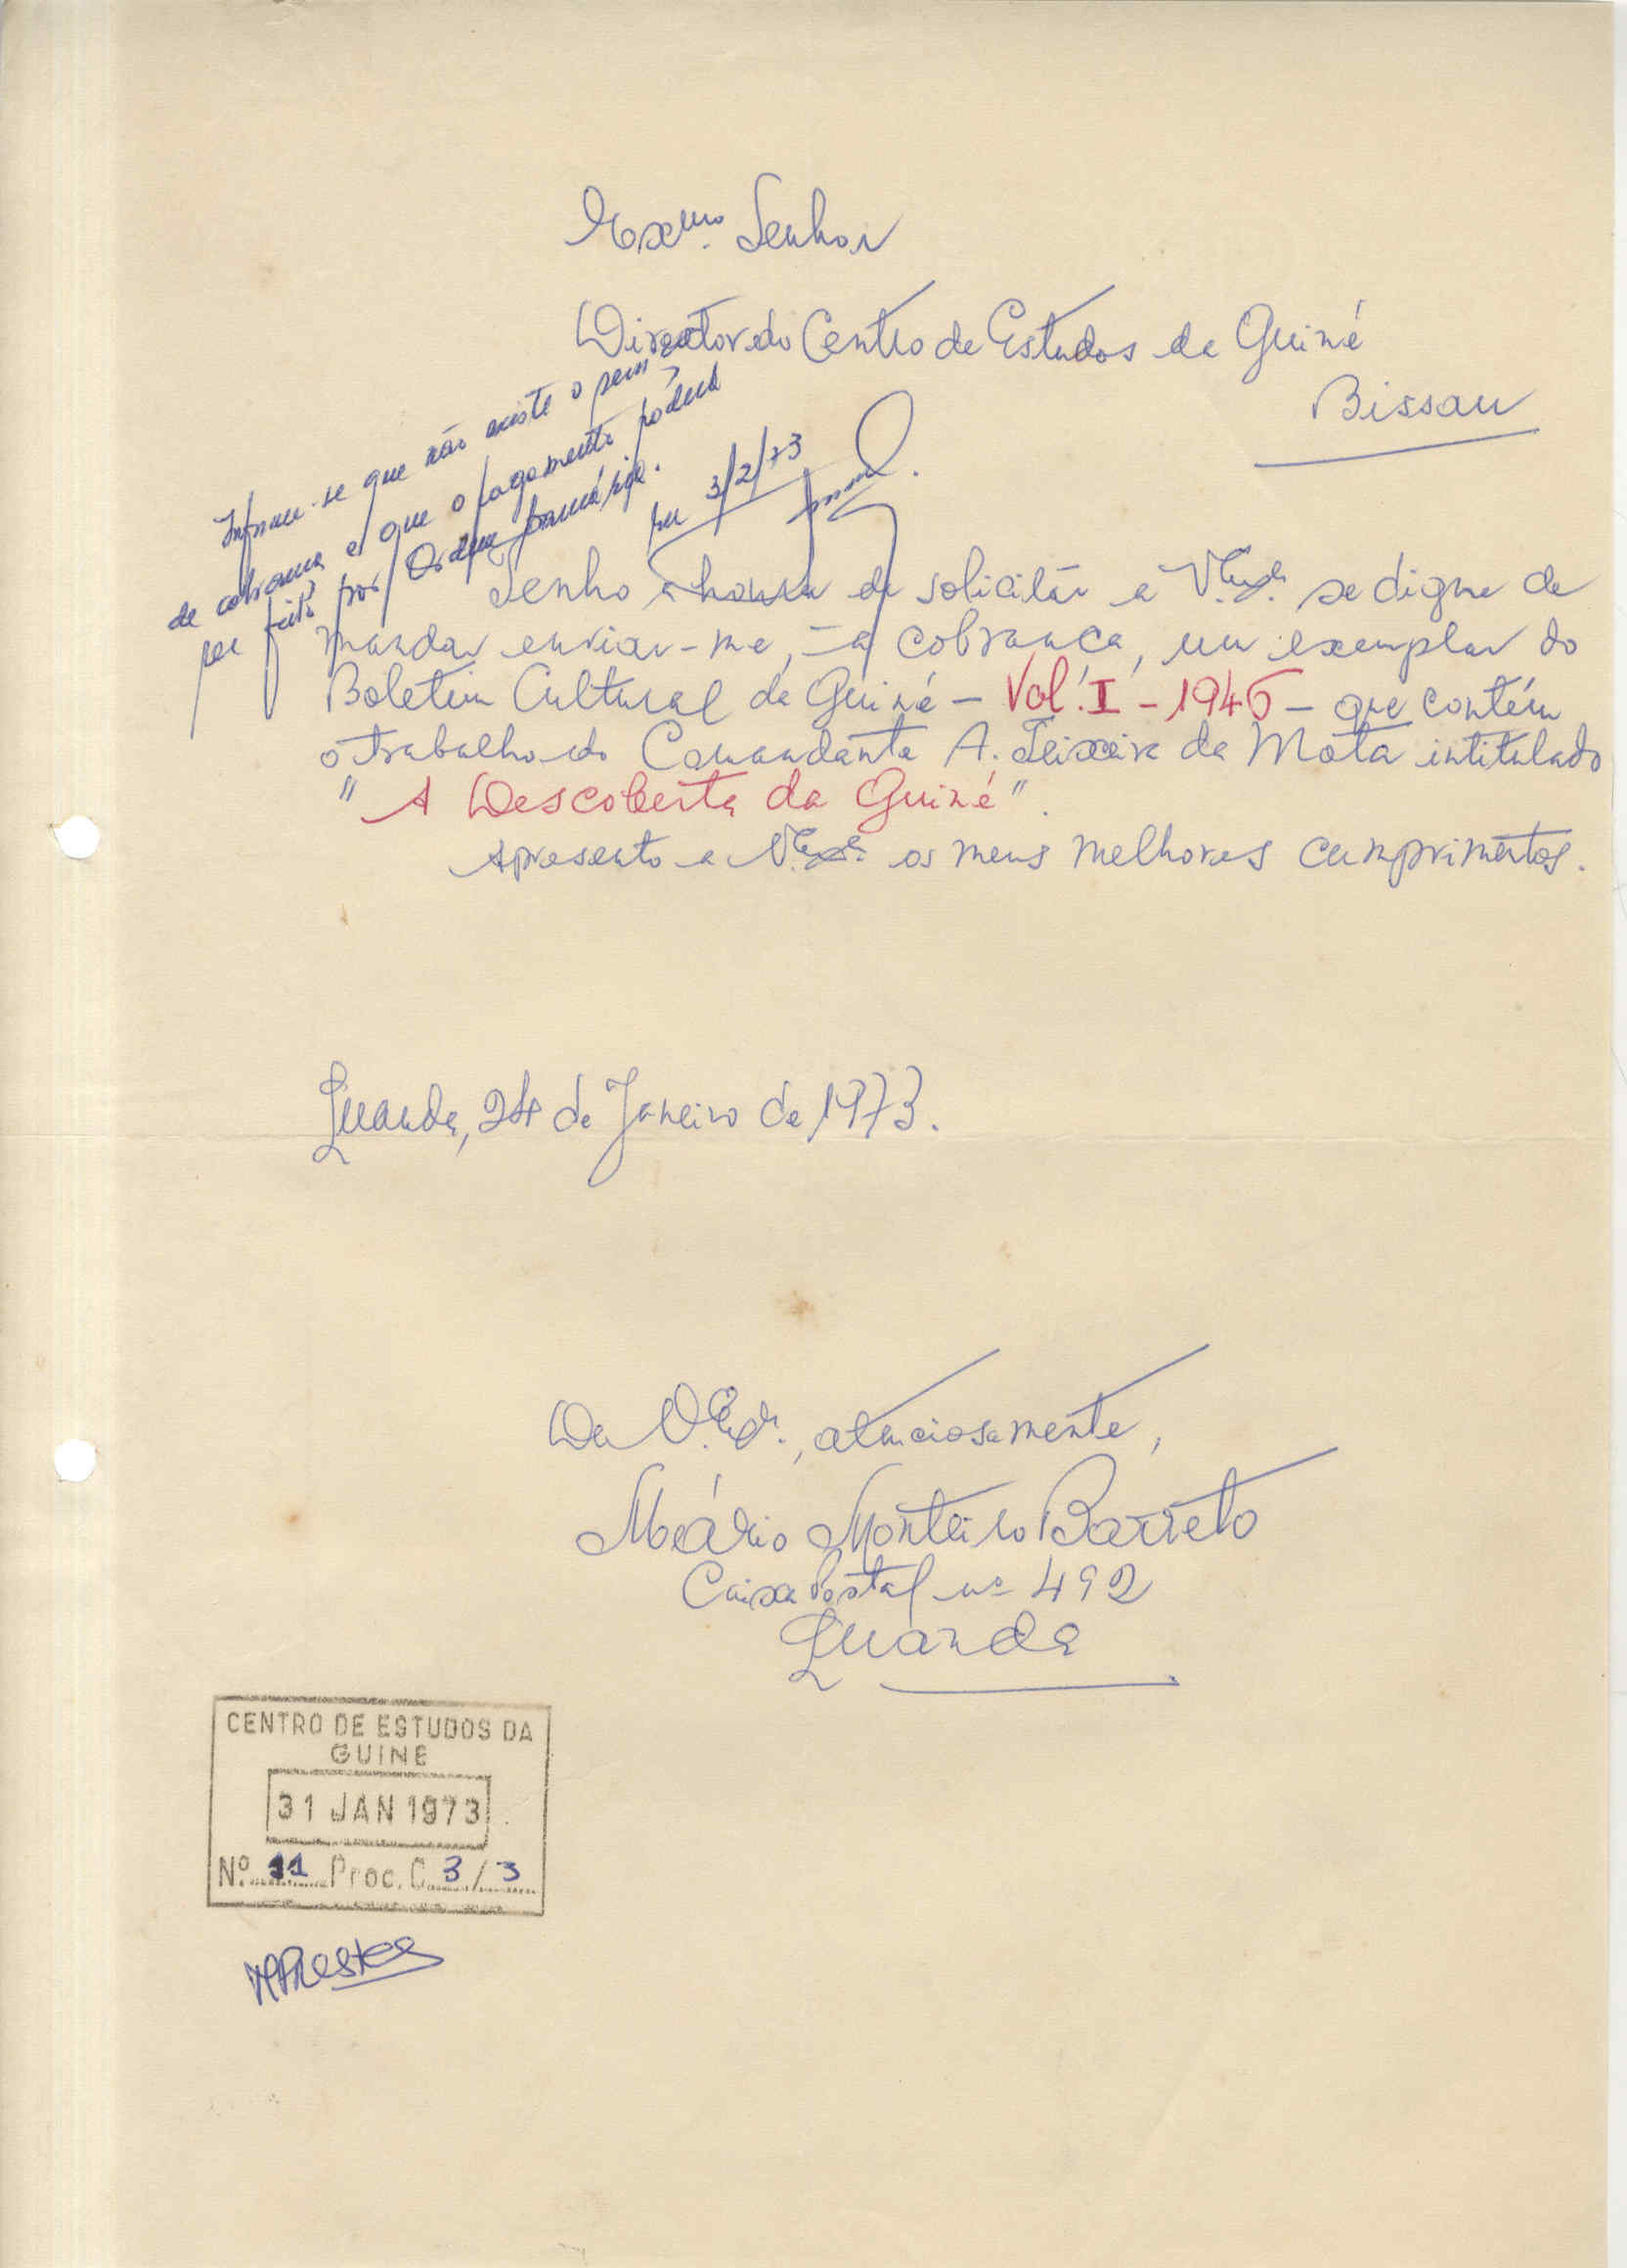 Exmo. Senhor
Director do Centro de Estudos da Guiné
Bissau
Informe-se que não existe o serv.
de cobrança e que o pagamento poderá
ser feito por Ordem bancária.
Em 3/2/73
Tenho a honra de solicitar a V. Exa. se digne de
mandar enviar-me, à cobrança, um exemplar do
Boletim Cultural da Guiné – Vol. I – 1946 – que contém
o trabalho do Comandante A. Teixeira da Mota intitulado
"A Descoberta da Guiné".
Apresento a V. Exa. os meus melhores cumprimentos.
Luanda, 24 de Janeiro de 1973.
De V. Exa., atenciosamente,
Mário Monteiro Barreto
Caixa Postal nº 492
Luanda
CENTRO DE ESTUDOS DA
GUINE
31 JAN 1973
Nº. 11 Proc. C 3/3